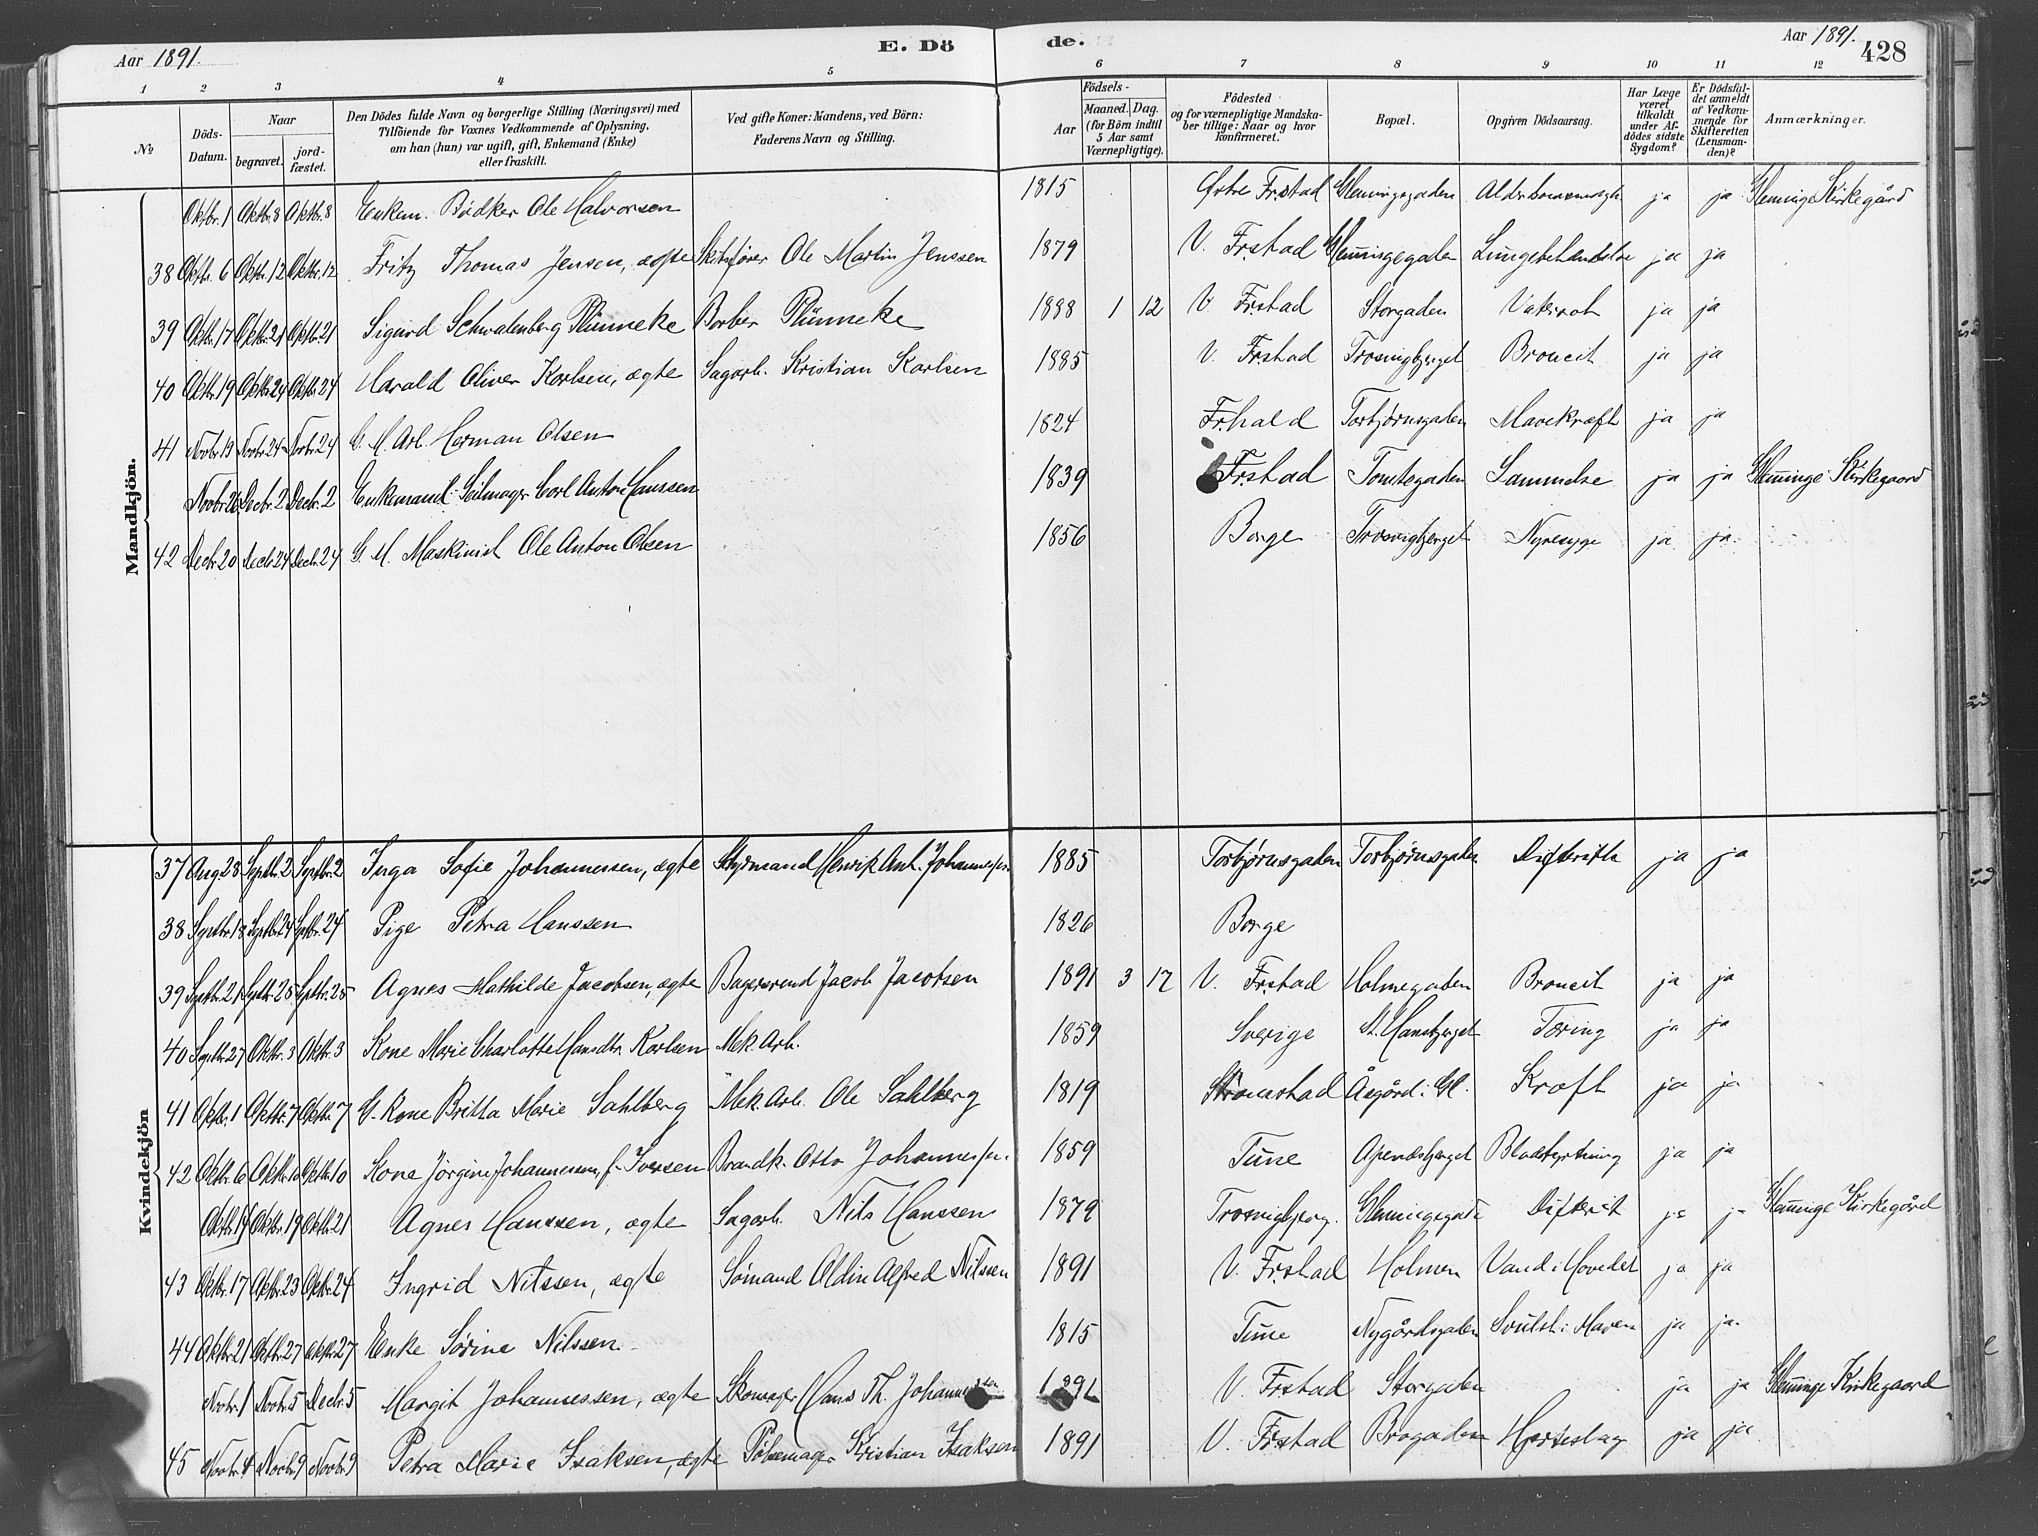 Aar 1891. E. Dö de. Aar 1891. 428
1 2 3 4 5 6 7 8 9 10 11 12
No
Döds-Datum.
Naar
begravet.
jord-fæstet.
Den Dödes fulde Navn og borgerlige Stilling (Næringsvei) med
Tilföiende for Voxnes Vedkommende af Oplysning,
om han (hun) var ugift, gift, Enkemand (Enke)
eller fraskilt.
Ved gifte Koner: Mandens, ved Börn:
Faderens Navn og Stilling.
Födsels-
Aar
Maaned. Dag.
(for Börn indtil
5 Aar samt
Værnepligtige).
Födested
og for værnepligtige Mandska-
ber tillige: Naar og hvor
konfirmeret.
Bopæl.
Opgiven Dödsaarsag.
Har Læge
været
tilkaldt
under Af-
dödes sidste
Sygdom?
Er Dödsfal-
det anmeldt
af Vedkom-
mende for
Skifteretten
(Lensman-
den)?
Anmærkninger.
Mandkjön.
Oktbr. 1 Oktbr. 8 Oktbr. 8 Enkem. Bødker Ole Halvorsen 1815 Frstad Glemmingegaden ja ja Glemminge Kirkegård
38 Oktbr. 6 Oktbr. 12 Oktbr. 12 Fritz Thomas Jensen, ægte Skibsfører Ole Martin Jenssen 1879 V. Frstad Glemmingegaden Lungebetændelse ja ja
39 Oktbr. 17 Oktbr. 21 Oktbr. 21 Sigurd Schwalenberg Plünneke Barber Plünneke 1888 1 12 V. Frstad Storgaden ja ja
40 Oktbr. 19 Oktbr. 24 Oktbr. 24 Harald Oliver Karlsen, ægte Sagarb. Kristian Karlsen 1885 V. Frstad Trosvigbjerget Broncit ja ja
41 Novbr. 19 Novbr. 24 Novbr. 24 G. M. Arb. Herman Olsen 1824 Frhald Torbjørnsgaden Mavekræft ja ja
Novbr. 26 Decbr. 2 Decbr. 2 Enkemand Seilmager Carl Anton Hanssen 1839 Frstad Tomtegaden Lammelse ja ja Glemminge Kirkegaard
42 Decbr. 20 Decbr. 24 Decbr. 24 G. M. Maskinist Ole Anton Olsen 1856 Borge Trosvigbjerget Nyresyge ja ja
Kvindekjön
37 Aug. 28 Septbr. 2 Septbr. 2 Inga Sofie Johannessen, ægte Styrmand Henrik Ant. Johannessen 1885 Torbjørnsgaden Torbjørnsgaden Difterith ja ja
38 Septbr. 18 Septbr. 24 Septbr. 24 Pige Petra Hanssen 1826 Borge
39 Septbr. 21 Septbr. 25 Septbr. 25 Agnes Mathilde Jacobsen, ægte Bagersvend Jacob Jacobsen 1891 3 17 V. Frstad Holmegaden Broncit ja ja
40 Septbr. 27 Oktbr. 3 Oktbr. 3 Kone Marie Charlotte Hansdtr. Karlsen Mek. Arb. 1859 Sverige St. Hansbjerget Tæring ja ja
41 Oktbr. 1 Oktbr. 7 Oktbr. 7 G. Kone Britta Marie Sahlberg Mek. Arb. Ole Sahlberg 1819 Strømstad Åsgård i Gl. Kræft ja ja
42 Oktbr. 6 Oktbr. 10 Oktbr. 10 Kone Jørgine Johannessen, f. Iversen Brandk. Otto Johannessen. 1859 Tune Apenæsbjerget Blodstyrtning ja ja
Oktbr. 14 Oktbr. 19 Oktbr. 21 Agnes Hanssen, ægte Sagarb. Nils Hanssen 1879 Trosvigbjerg. Glemmingegate Difterit ja ja Glemminge Kirkegård
43 Oktbr. 17 Oktbr. 23 Oktbr. 24 Ingrid Nilssen, ægte Sømand Oldin Alfred Nilssen 1891 V. Frstad Holmen Vand i Hovedet ja ja
44 Oktbr. 21 Oktbr. 27 Oktbr. 27 Enke Sørine Nilssen 1815 Tune Nygårdsgaden Svulst i Maven ja ja
Novbr. 1 Novbr. 5 Decbr. 5 Margit Johannessen, ægte Skomager Hans Th. Johannessen 1891 V. Frstad Storgaden ja ja Glemminge Kirkegaard
45 Novbr. 4 Novbr. 9 Novbr. 9 Petra Marie Isaksen, ægte Pølsemager Kristian Isaksen 1891 V. Frstad Brogaden Hjerteslag ja ja